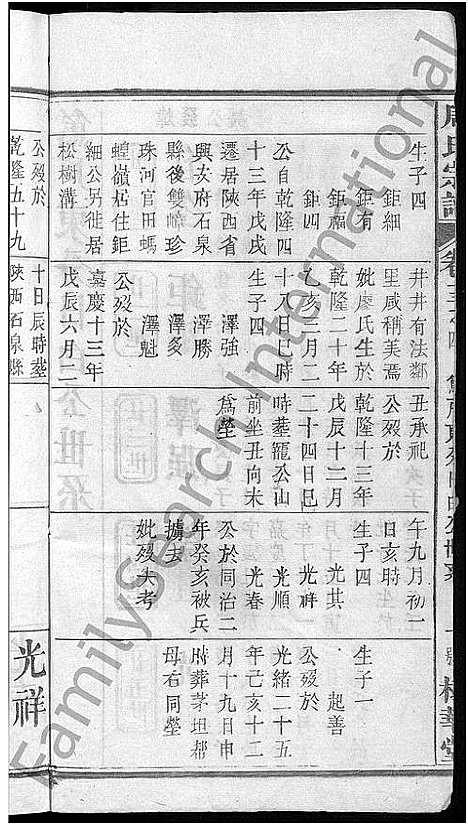 周氏宗譜
生子四
鉅細
鉅有
鉅福
鉅四
公自乾隆四
十三年戊戌
遷居陝西省
興安府石泉
縣後雙嶂珍
珠河官田螞
蝗嶺居住鉅
細公另徙居
松樹溝
公歿於
乾隆五十九
井井有法鄰
里咸稱美焉
妣廖氏生於
乾隆二十年
乙亥三月二
十八日巳時
生子四
澤強
澤勝
澤多
澤魁
公歿於
嘉慶十三年
戊辰六月二
十日辰時塟
陝西石泉縣
丑承祀
公歿於
乾隆十三年
戊辰十二月
二十四日巳
時塟龍公山
前坐丑向未
為塋
午九月初二
日亥時
生子四
光其
光祥
光順
光春
公於同治二
年癸亥被兵
擄去
妣歿失考
光祥
生子一
起善
公歿於
光緒二十五
年己亥十二
月十九日申
時葬茅坦郝
母右同塋
FamilySearch International